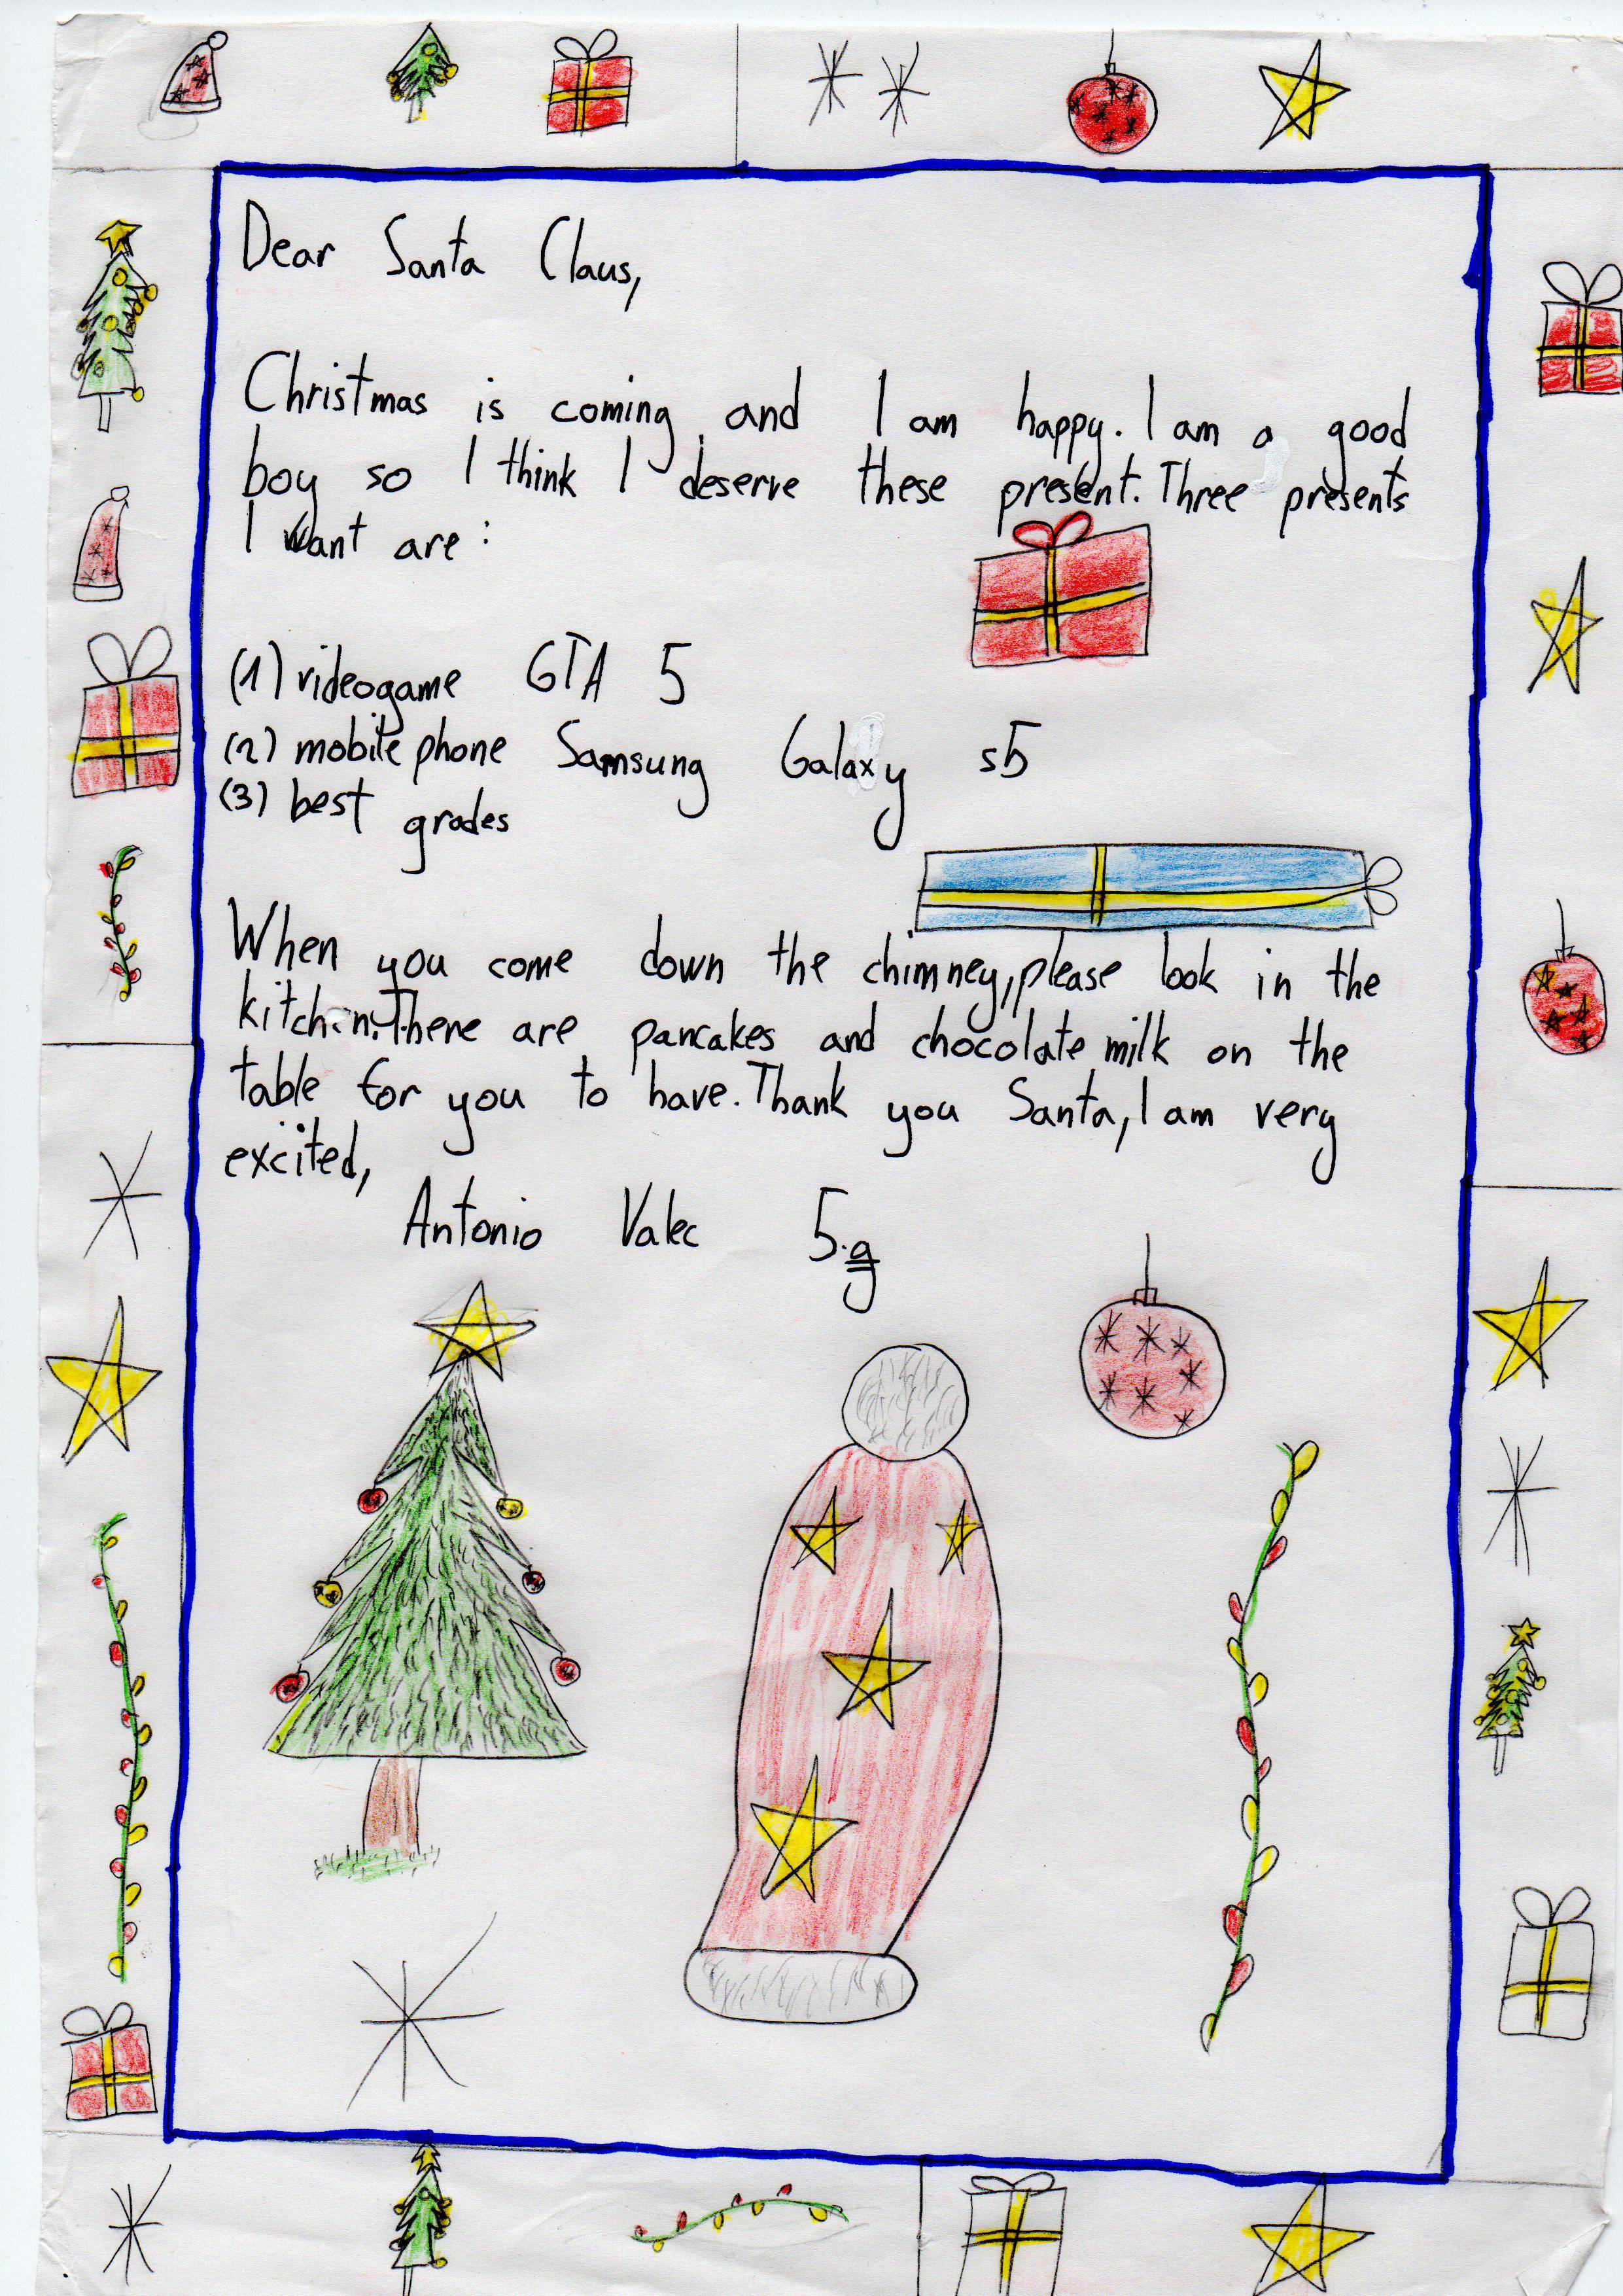 Dear Santa Claus,
Christmas is coming and I am happy. I am a good
boy so I think I deserve these present. Three presents
I want are:
(1) videogame GTA 5
(2) mobile phone Samsung Galaxy s5
(3) best grades
When you come down the chimney, please look in the
kitchen. There are pancakes and chocolate milk on the
table for you to have. Thank you Santa, I am very
excited,
Antonio Valec 5.g